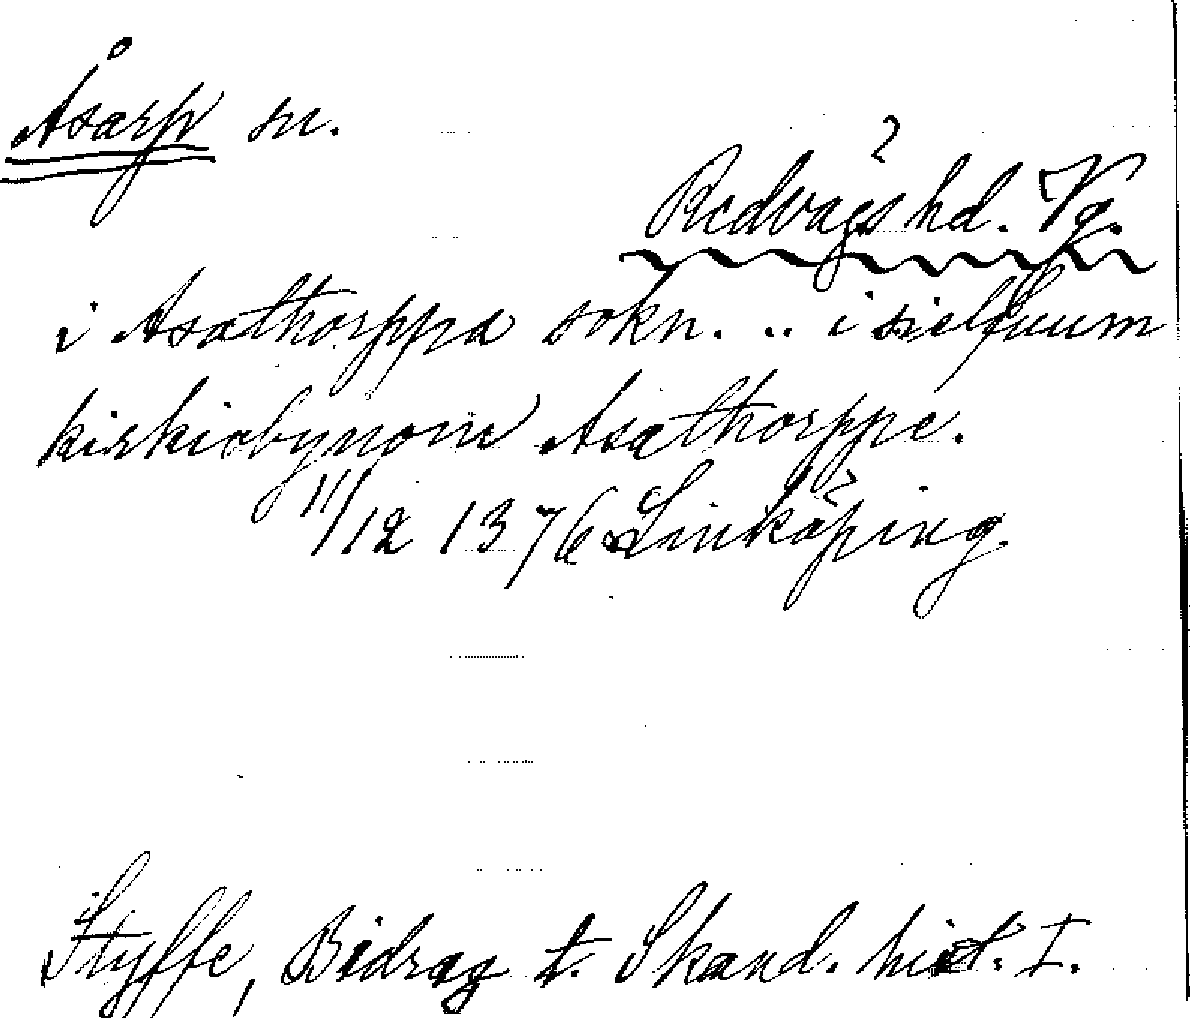 Åsarp sn.
Redvägs hd. Vg.
i Asathorppa sokn. .. i sielfuum
kirkiobynom Asathorppe.
11/12 1376 Linköping.
Styffe, Bidrag t. Skand. hist. I.